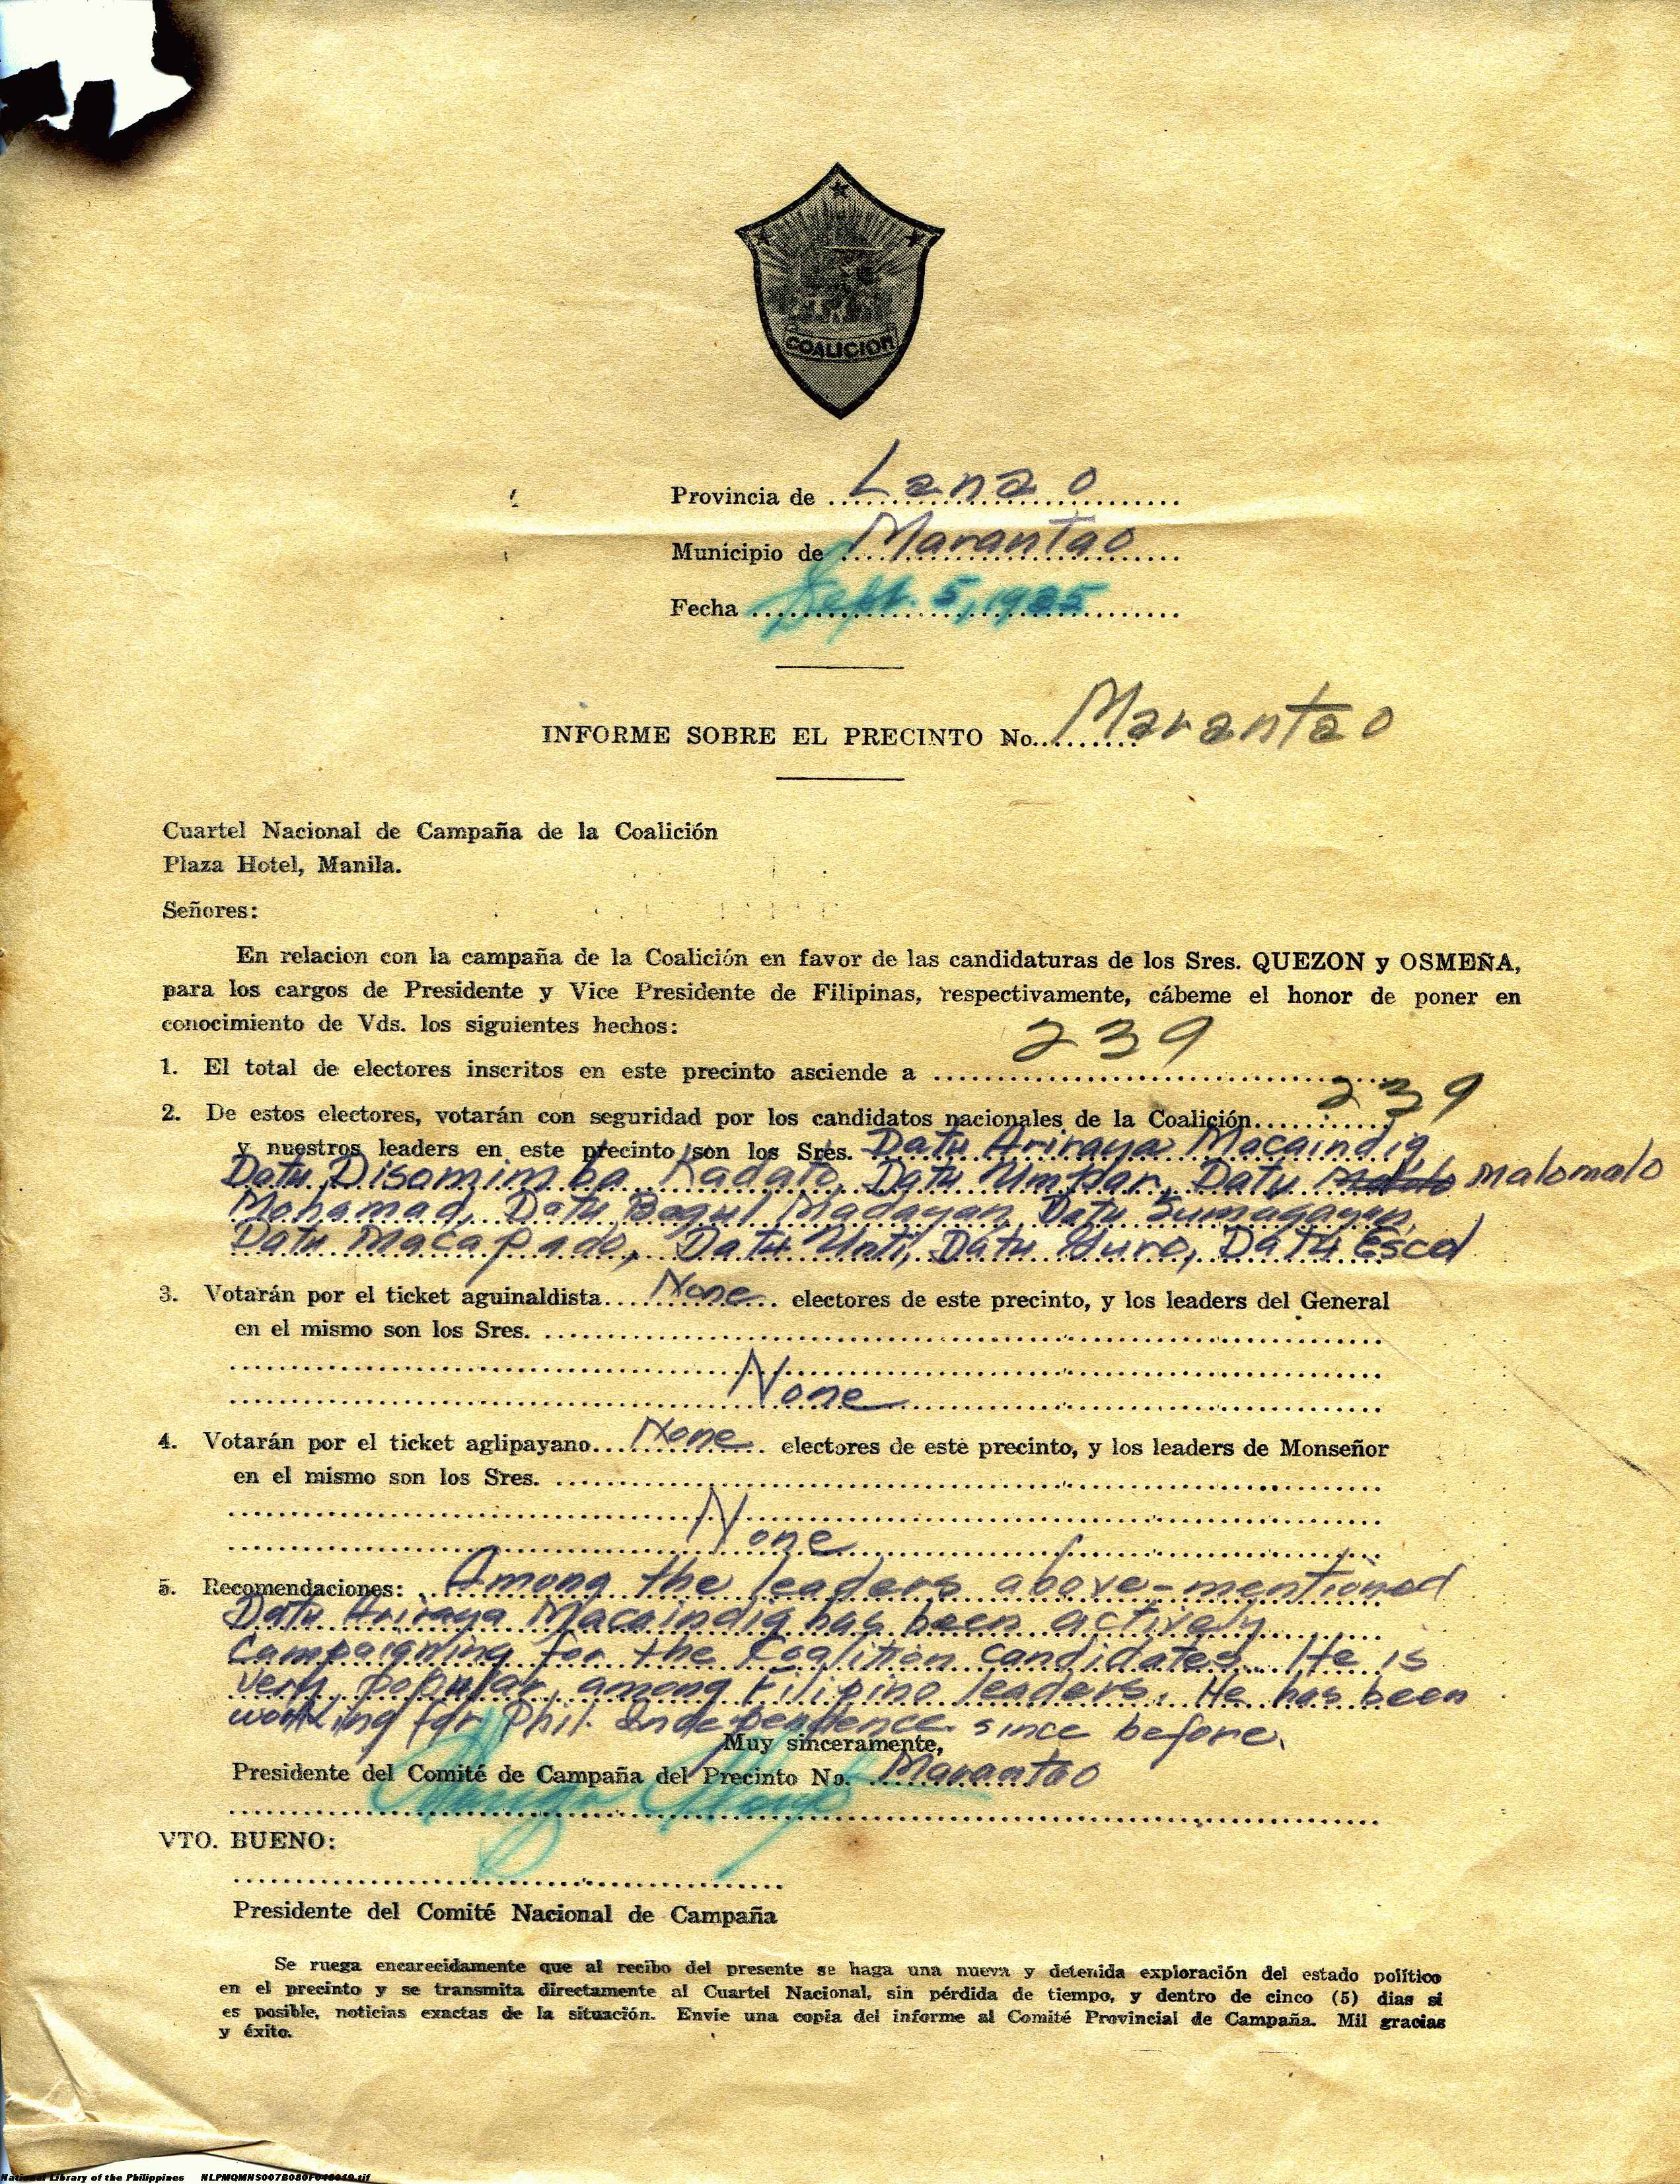 COALICION
Provincia de Lanao
Municipio de Marantao
Fecha Sept. 5, 1935
INFORME SOBRE EL PRECINTO No. Marantao
Cuartel Nacional de Campaña de la Coalición
Plaza Hotel, Manila.
Señores:
En relacion con la campaña de la Coalición en favor de las candidaturas de los Sres. QUEZON y OSMEÑA,
para los cargos de Presidente y Vice Presidente de Filipinas, respectivamente, cábeme el honor de poner en
conocimiento de Vds. los siguientes hechos:
1. El total de electores inscritos en este precinto asciende a 239
2. De estos electores, votarán con seguridad por los candidatos nacionales de la Coalición 239
y nuestros leaders en este precinto son los Sres. Datu Ariraya Macaindig
Datu Disomimba Radato, Datu Umpar, Datu malomalo
Mohamad, Datu Bagul Madayan, Datu Sumagayan,
Datu Macapado, Datu Unti, Datu Guro, Datu Escol
3. Votarán por el ticket aguinaldista None electores de este precinto, y los leaders del General
en el mismo son los Sres.
None
4. Votarán por el ticket aglipayano None electores de este precinto, y los leaders de Monseñor
en el mismo son los Sres.
None
5. Recomendaciones: Among the leaders above-mentioned
Datu Ariraya Macaindig has been actively
Campaigning for the Coalition candidates. He is
very popular among Filipino leaders. He has been
working for Phil. Independence since before.
Muy sinceramente,
Presidente del Comité de Campaña del Precinto No. Marantao
VTO. BUENO:
Presidente del Comité Nacional de Campaña
Se ruega encarecidamente que al recibo del presente se haga una nueva y detenida exploración del estado político
en el precinto y se transmita directamente al Cuartel Nacional, sin pérdida de tiempo, y dentro de cinco (5) dias si
es posible, noticias exactas de la situación. Envíe una copia del informe al Comité Provincial de Campaña. Mil gracias
y éxito.
National Library of the Philippines NLPMQMNS007B080F048049.tif